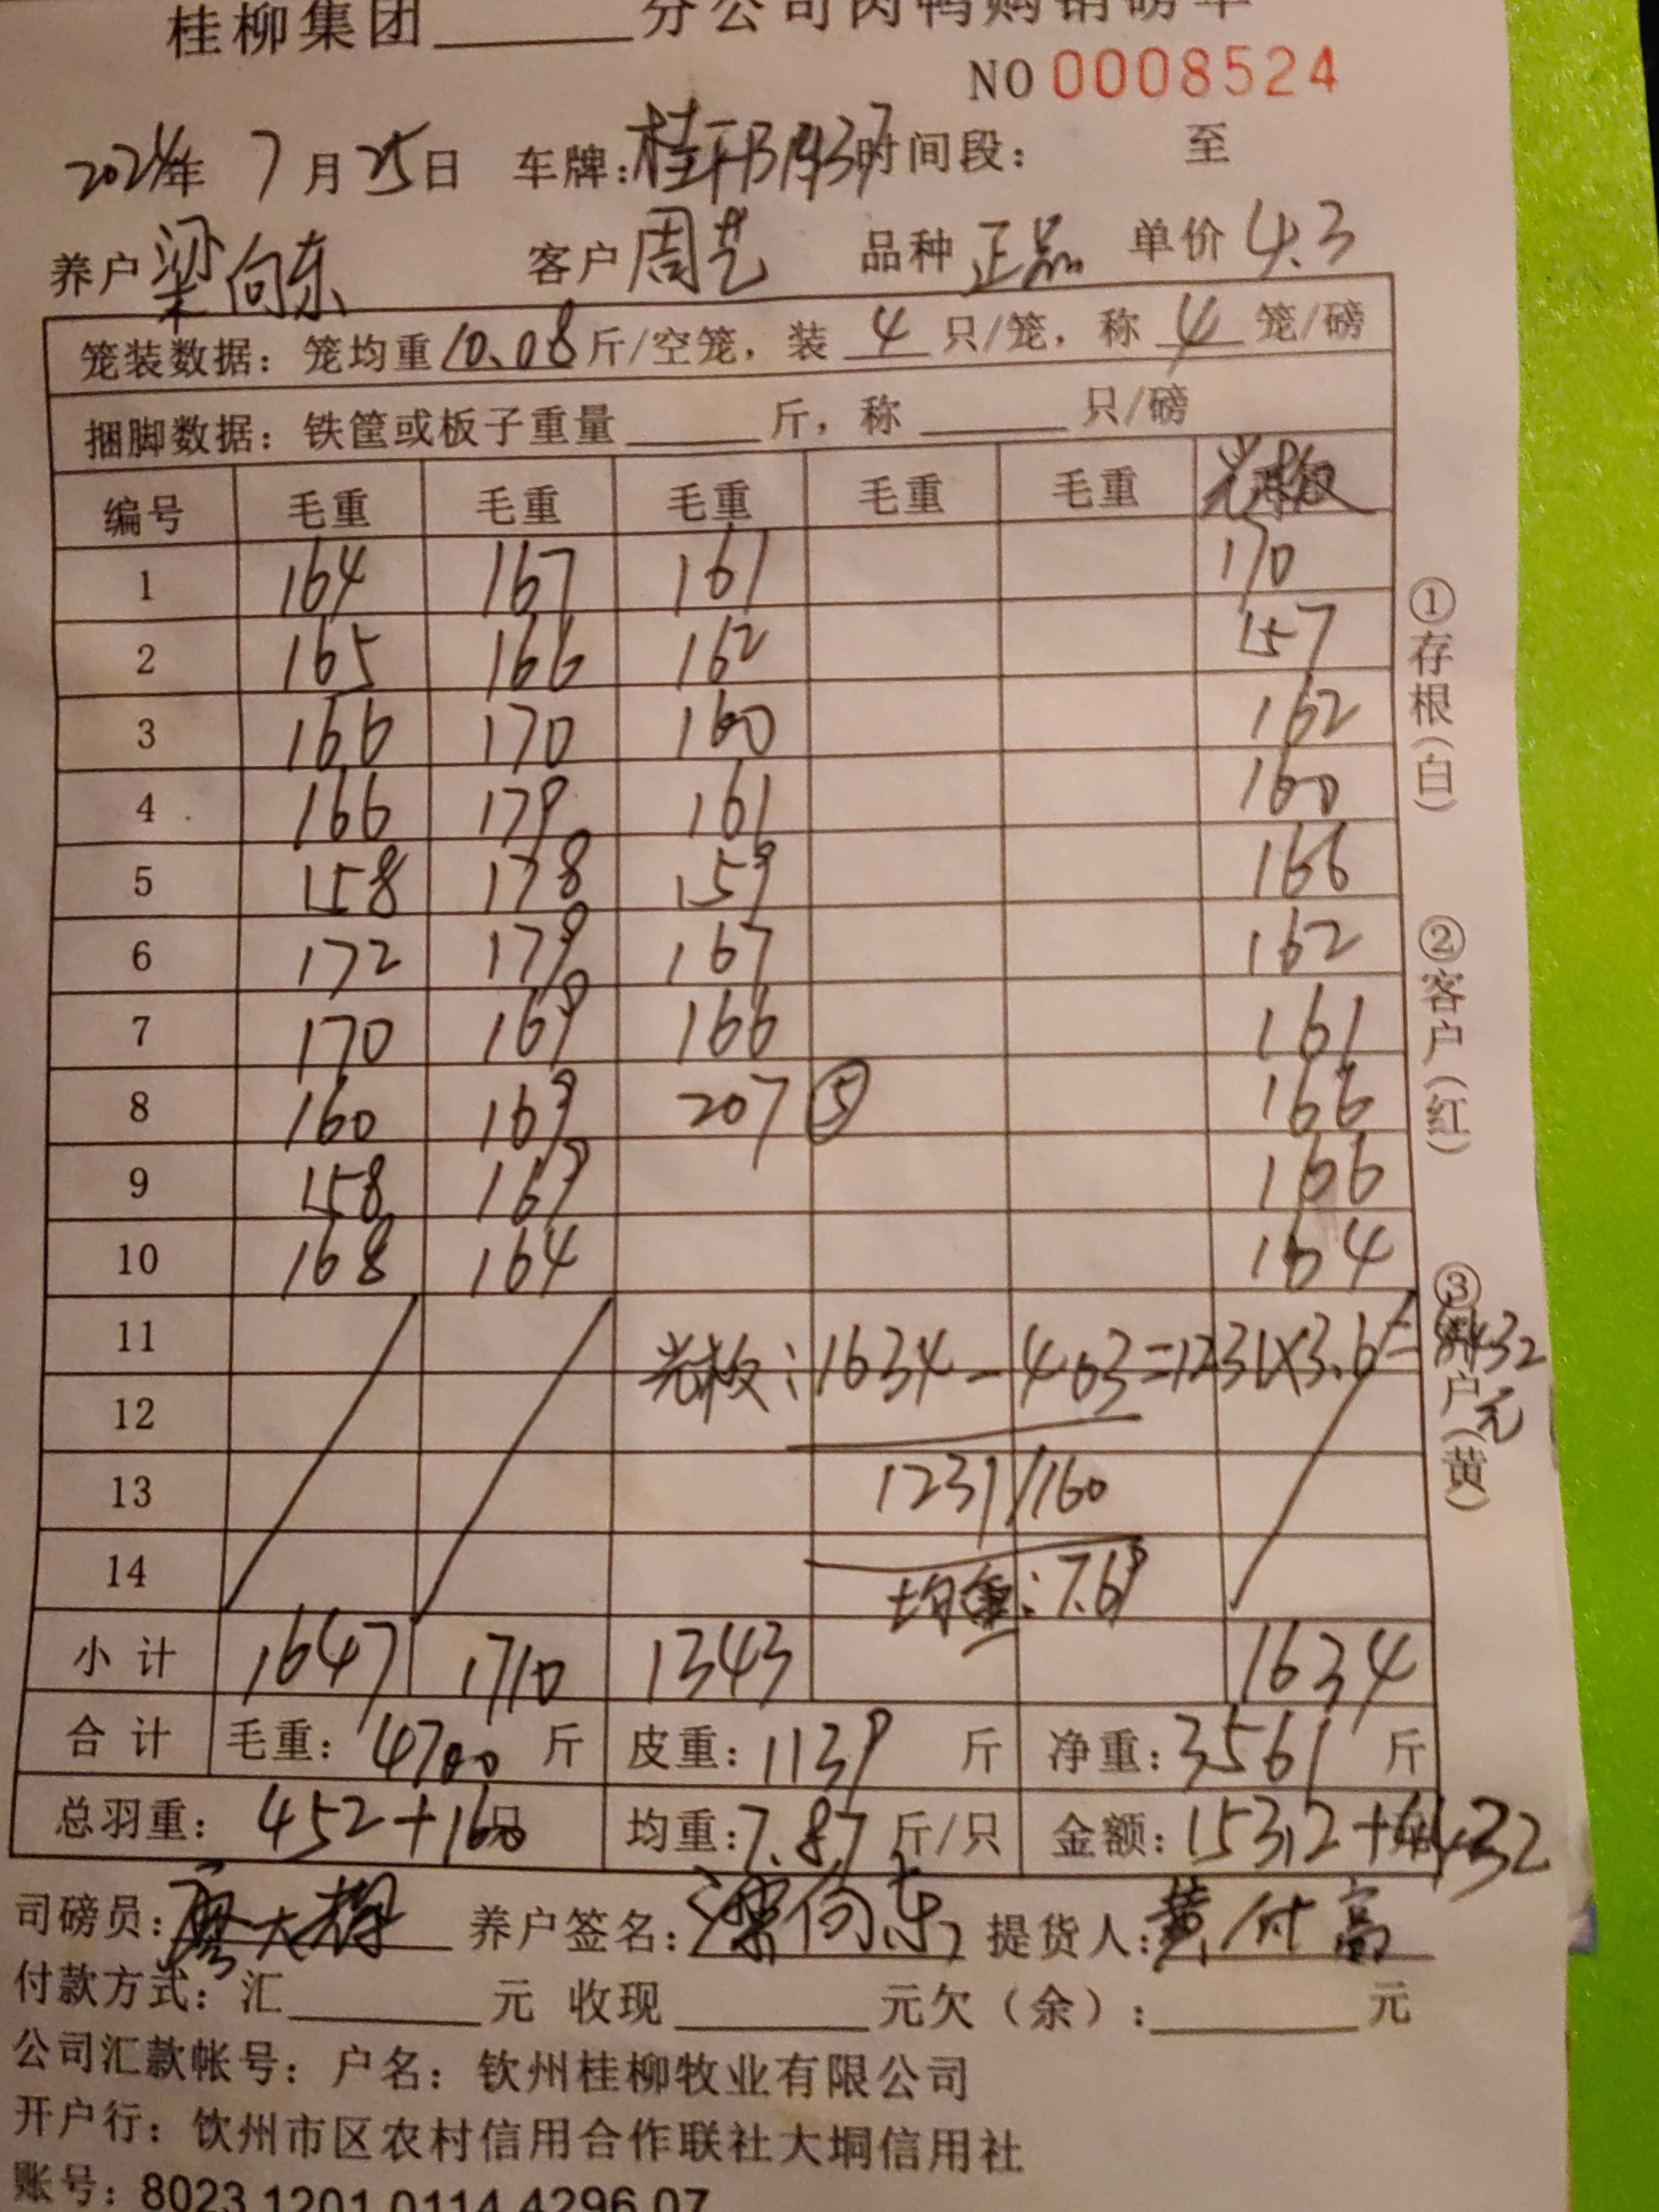 桂柳集团______分公司肉鸭购销磅单
NO 0008524
2024年 7月25日 车牌: 时间段: 至
养户 梁向东 客户 周艺 品种 正品 单价 4.3
笼装数据: 笼均重10.08斤/空笼, 装 4 只/笼, 称 4 笼/磅
捆脚数据: 铁筐或板子重量______斤, 称______只/磅
编号 毛重 毛重 毛重 毛重 毛重 光板
1 164 167 161 170
2 165 166 162 157
3 166 170 160 162
4 166 179 161 160
5 158 178 159 166
6 172 179 167 162
7 170 169 166 161
8 160 169 207 ⑤ 166
9 158 169 166
10 168 164 164
11 光板: 1634-403=1231×3.6=4432元
12
13 1231/160
14 均重: 7.69
小计 1647 1710 1343 1634
合计 毛重: 4700 斤 皮重: 1139 斤 净重: 3561 斤
总羽重: 452+160只 均重: 7.87 斤/只 金额: 15312+4432
司磅员: 养户签名: 梁向东 提货人: 黄付高
付款方式: 汇______元 收现______元欠(余):______元
公司汇款帐号: 户名: 钦州桂柳牧业有限公司
开户行: 钦州市区农村信用合作联社大垌信用社
账号: 8023 1201 0114 4296 07
①存根(白)
②客户(红)
③养户(黄)